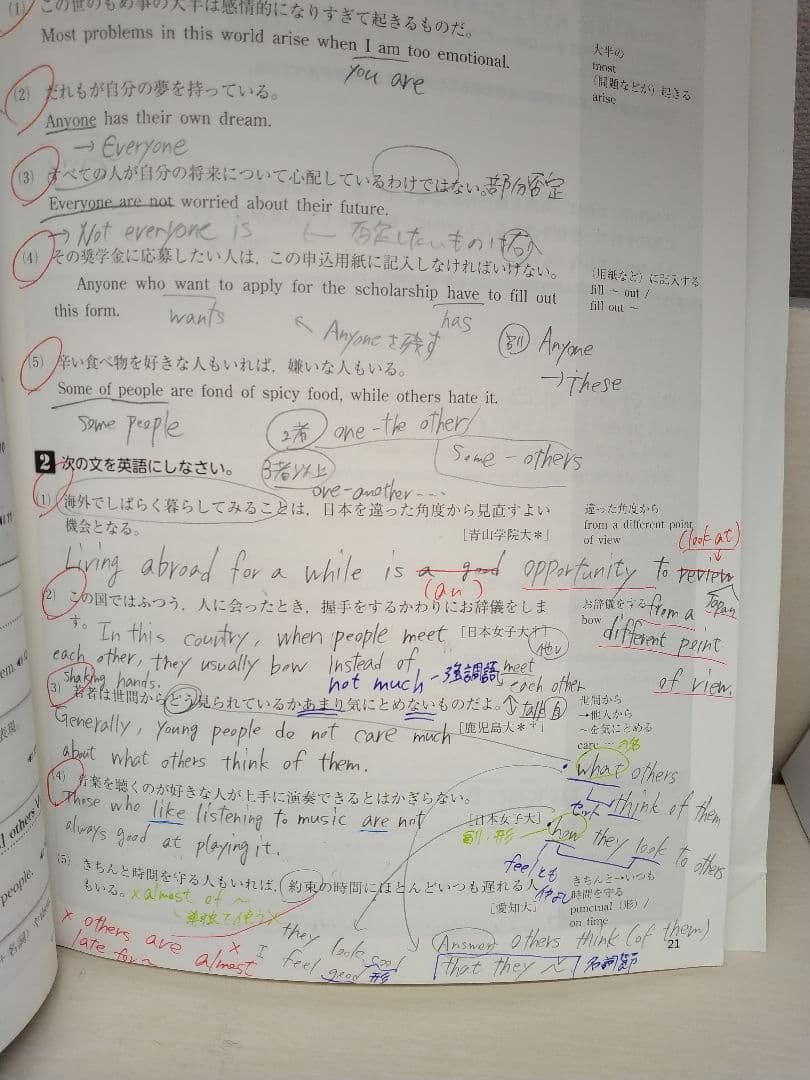 (1) この世のもめ事の大半は感情的になりすぎて起きるものだ。
Most problems in this world arise when I am too emotional.
you are
大半の
most
(問題などが) 起きる
arise
(2) だれもが自分の夢を持っている。
Anyone has their own dream.
→ Everyone
(3) すべての人が自分の将来について心配しているわけではない。部分否定
Everyone are not worried about their future.
→ Not everyone is ← 否定したいものは右へ
(4) その奨学金に応募したい人は，この申込用紙に記入しなければいけない。
Anyone who want to apply for the scholarship have to fill out
this form.
wants
has
↖ Anyoneを残す
別 Anyone
→ These
(用紙など) に記入する
fill ～ out /
fill out ～
(5) 辛い食べ物を好きな人もいれば，嫌いな人もいる。
Some of people are fond of spicy food, while others hate it.
some people
2者 one - the other/
Some - others
3者以上
one - another ---
2 次の文を英語にしなさい。
(1) 海外でしばらく暮らしてみることは，日本を違った角度から見直すよい
機会となる。
[青山学院大＊]
違った角度から
from a different point
of view
(look at)
Living abroad for a while is a good opportunity to review Japan
(an)
from a
different point
of view.
(2) この国ではふつう，人に会ったとき，握手をするかわりにお辞儀をしま
す。
[日本女子大＊]
お辞儀をする
bow
In this country, when people meet
each other, they usually bow instead of
shaking hands.
not much - 強調語
meet
each other
talk
(3) 若者は世間からどう見られているかあまり気にとめないものだよ。
[鹿児島大＊]
世間から
→他人から
～を気にとめる
care ～
Generally, young people do not care much
about what others think of them.
what others
think of them
セット
(4) 音楽を聴くのが好きな人が上手に演奏できるとはかぎらない。
[日本女子大]
Those who like listening to music are not
always good at playing it.
副・形
how they look to others
feelとも
(5) きちんと時間を守る人もいれば，約束の時間にほとんどいつも遅れる人
もいる。
[愛知大]
きちんと→いつも
時間を守る
punctual (形) /
on time
× almost of ～
単独で使う×
× others are × almost
late for ～
they look good
I feel good 形
Answer others think (of them)
that they ～ 名詞節
21